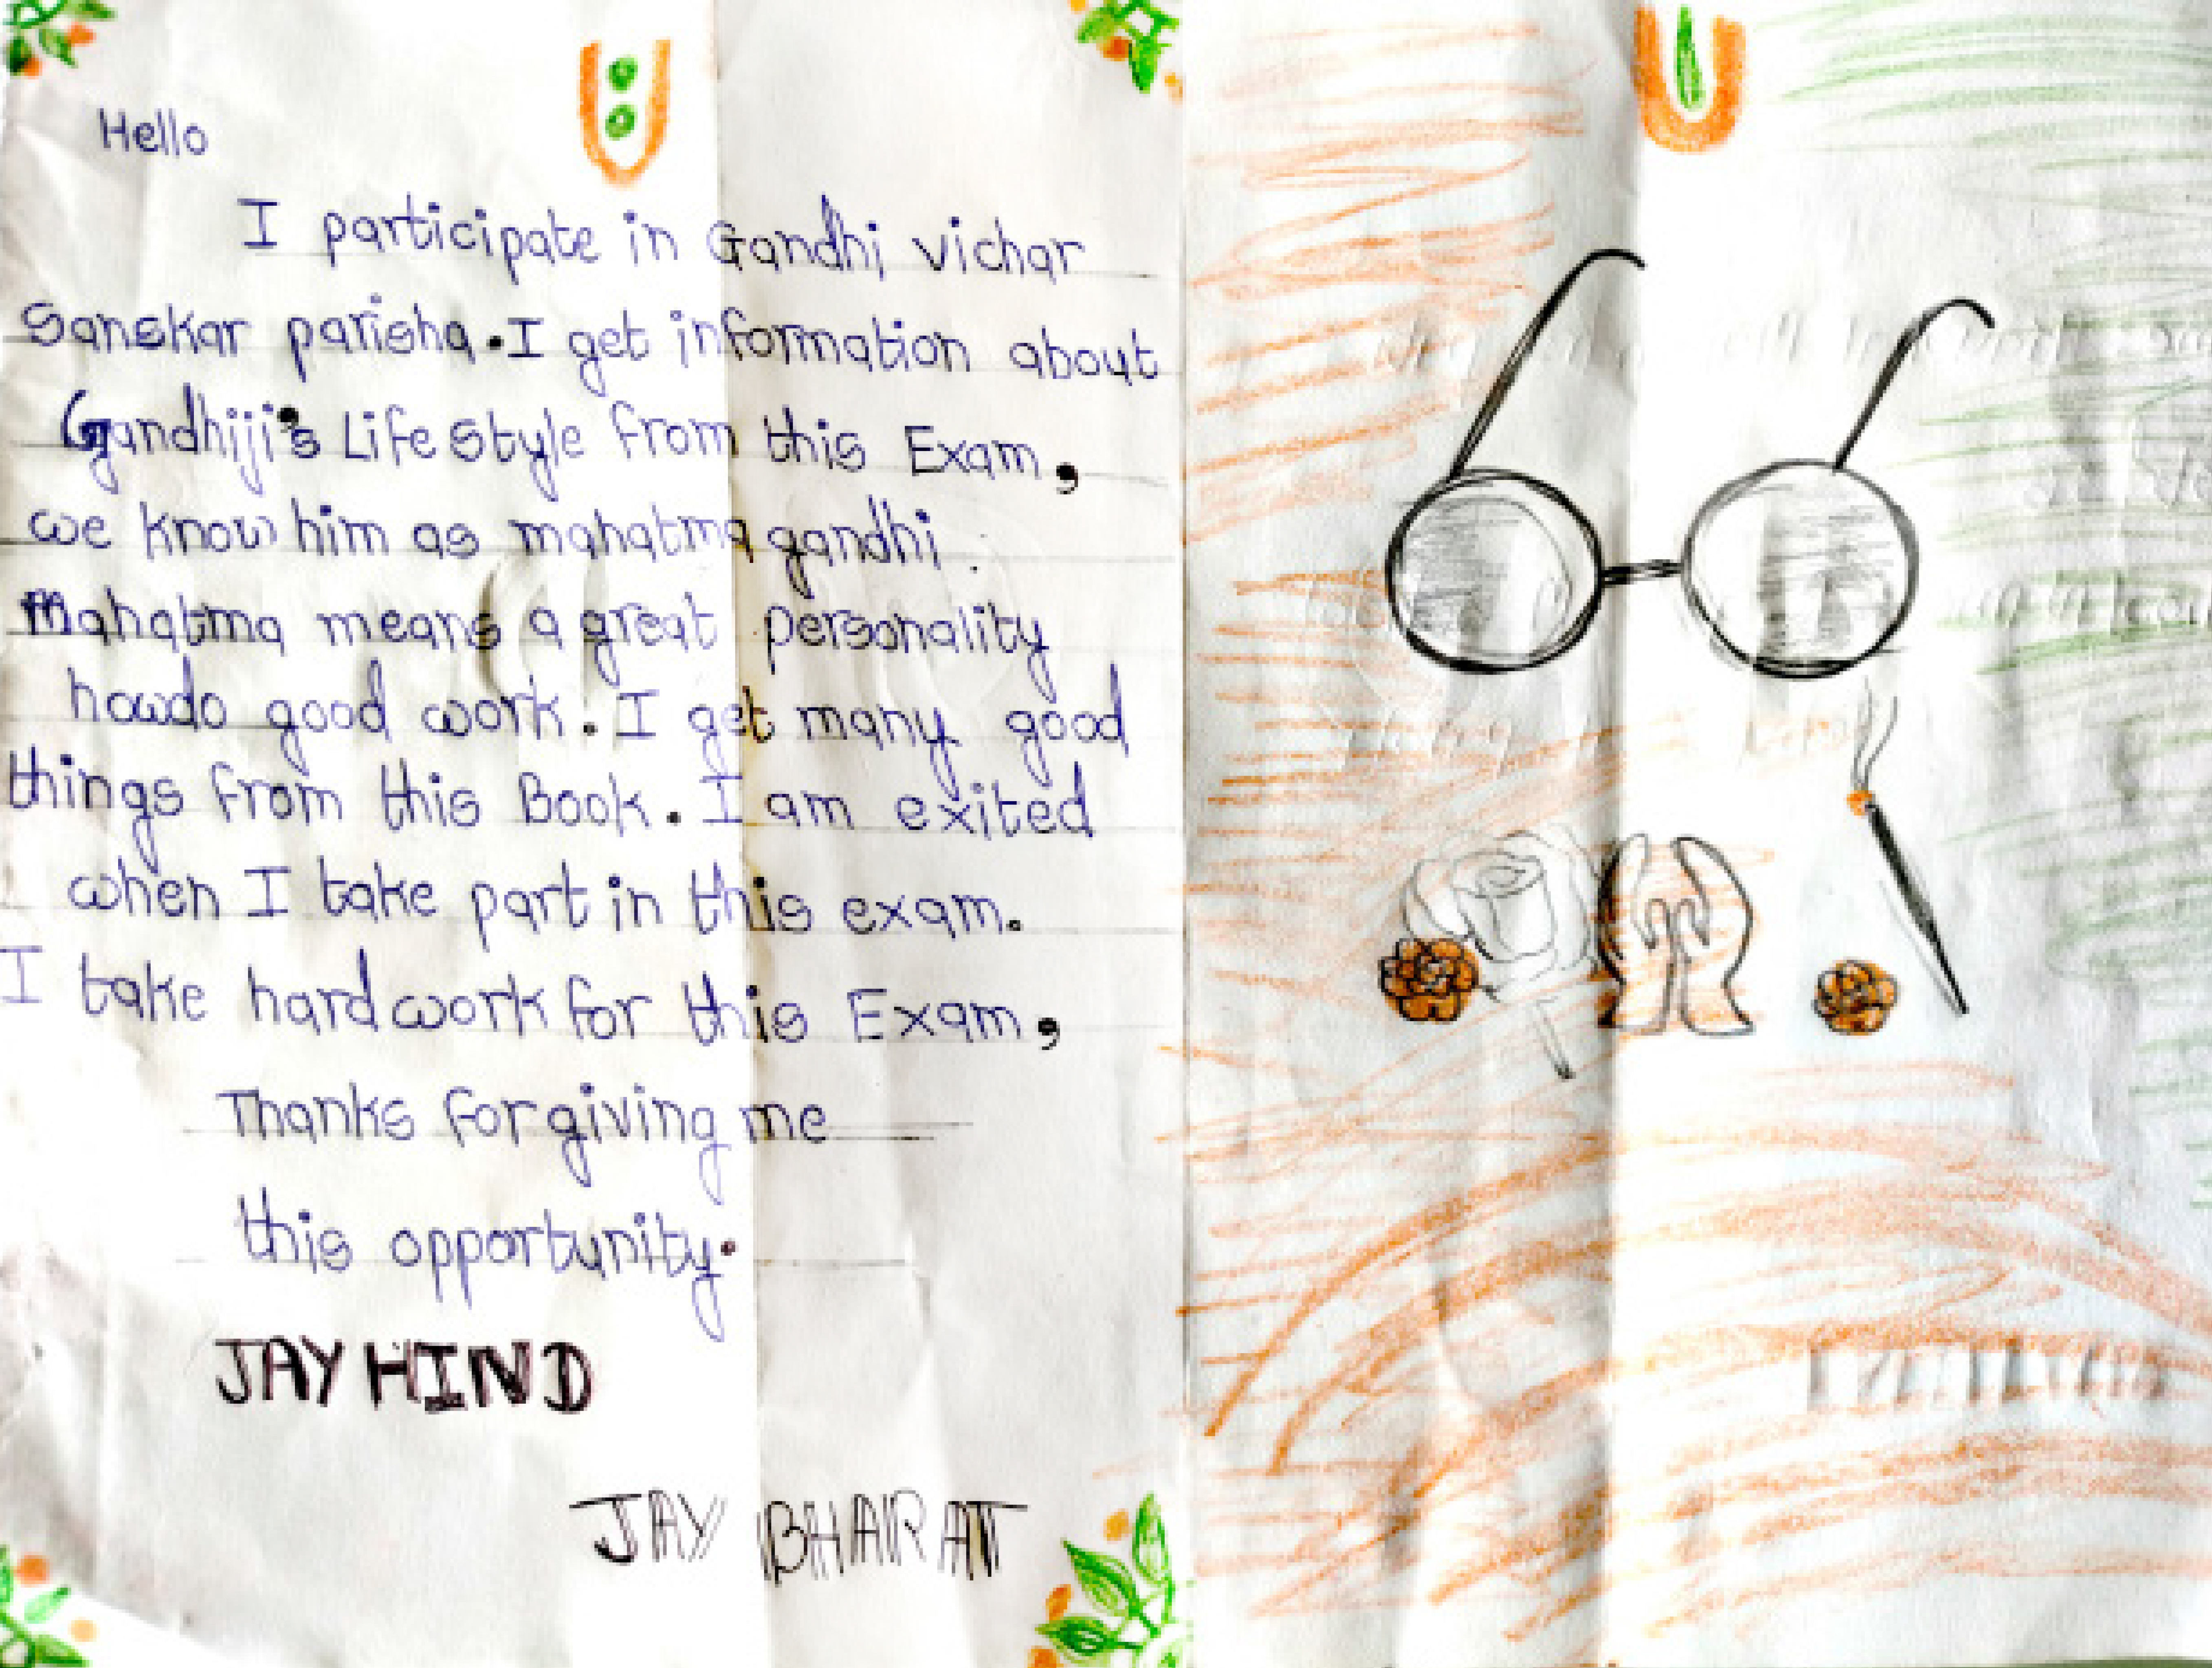 Hello
I participate in Gandhi vichar
Sanskar parisha. I get information about
Gandhiji's Life style from this Exam,
we know him as mahatma gandhi.
Mahatma means a great personality
howdo good work. I get many good
things from this Book. I am exited
when I take part in this exam.
I take hard work for this Exam,
Thanks for giving me
this opportunity.
JAY HIND
JAY BHARAT